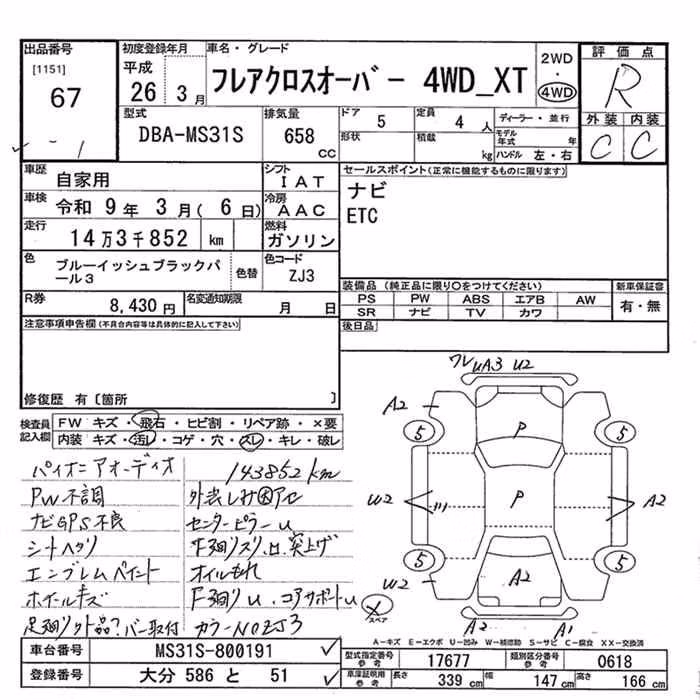 出品番号
[1151]
67
初度登録年月
平成
26 3月
車名・グレード
フレアクロスオーバー 4WD_XT
2WD
・
4WD
評価点
R
外装 内装
C C
型式
DBA-MS31S
排気量
658 cc
ドア 5
形状
定員 4 人
積載 kg
ディーラー・並行
モデル年式 年
ハンドル 左・右
車歴 自家用
シフト IAT
車検 令和 9年 3月( 6日)
冷房 AAC
走行 14万3千852 km
燃料 ガソリン
色 ブルーイッシュブラックパール3
色替
色コード ZJ3
R券 8,430円
名変通知期限 月 日
セールスポイント(正常に機能するものに限ります)
ナビ
ETC
装備品(純正品に限り○をつけてください)
PS PW ABS エアB AW
SR ナビ TV カワ
新車保証書
有・無
後日品
注意事項申告欄(不具合内容等は具体的に記入して下さい)
修復歴 有〔箇所 〕
検査員記入欄
FW キズ・飛石・ヒビ割・リペア跡・×要
内装 キズ・汚レ・コゲ・穴・スレ・キレ・破レ
パイオニアオーディオ
PW不調
ナビGPS不良
シートヘタリ
エンブレムペイント
ホイールキズ
足廻り外品?バー取付
143852km
センターピラーU
下廻りスリ、ロ、突上げ
オイルもれ
下廻りU、コアサポートU
カラーNOZJ3
ワレUA3 U2
A2
5 5
P
U2 P A2
5 5
U2 A2
スペア
A2 A1
A-キズ E-エクボ U-凹み W-補修跡 S-サビ C-腐食 XX-交換済
車台番号 MS31S-800191
登録番号 大分 586 と 51
型式指定番号 参考 17677
類別区分番号 参考 0618
車庫証明用 参考 長さ 339 cm 幅 147 cm 高さ 166 cm